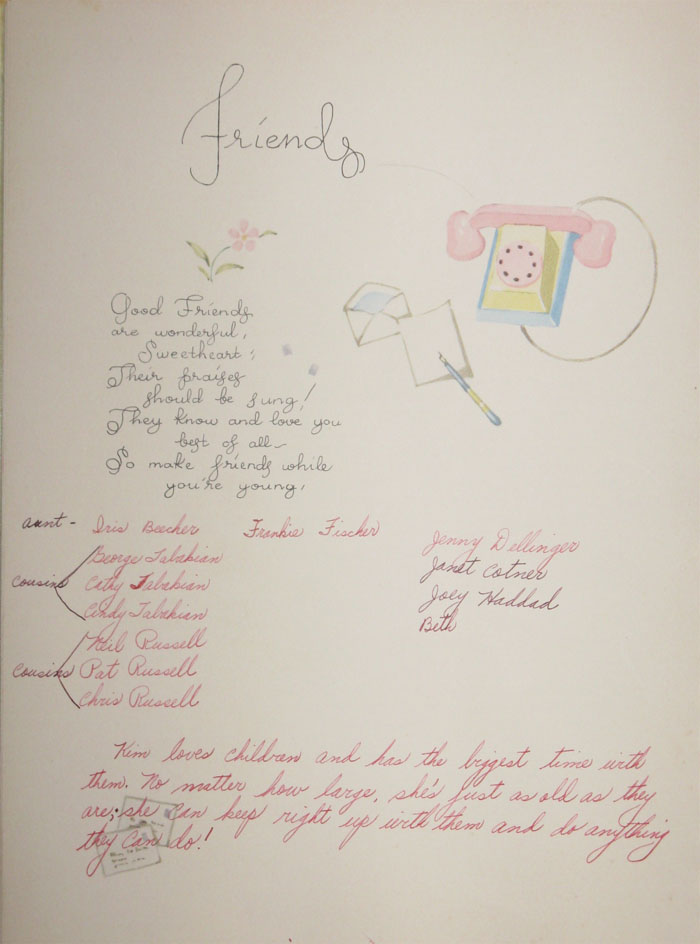 Friends
Good Friends
are wonderful,
Sweetheart;
Their praises
should be sung!
They know and love you
best of all—
So make friends while
you're young.
aunt - Iris Beecher Frankie Fischer Jenny Dellinger
George Tabakian Janet Cotner
cousins Cathy Tabakian Joey Haddad
Cindy Tabakian Beth
Neil Russell
cousins Pat Russell
Chris Russell
Kim loves children and has the biggest time with
them. No matter how large, she's just as old as they
are; she can keep right up with them and do anything
they can do!